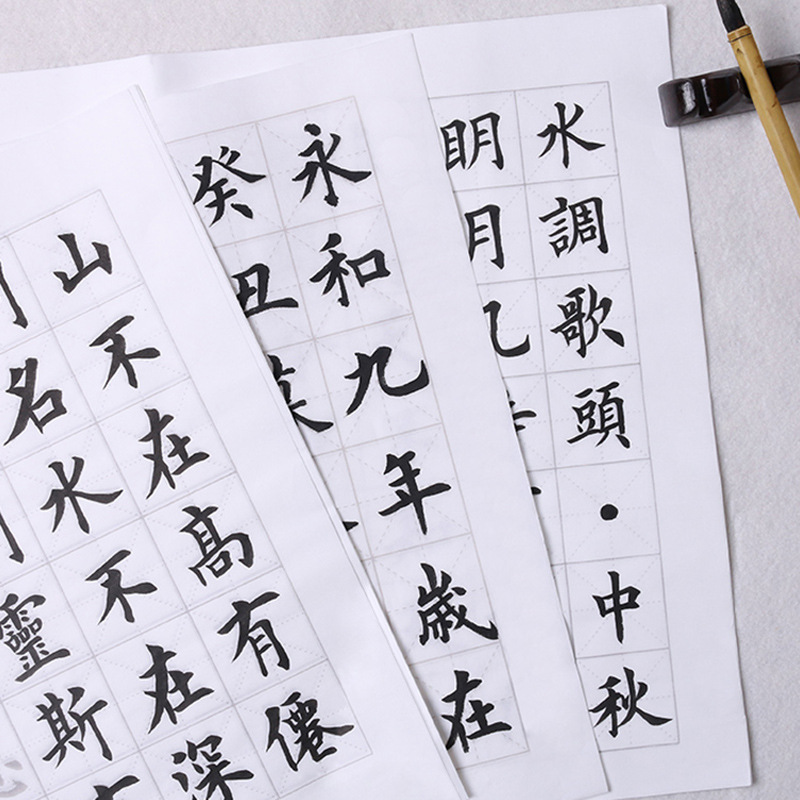 水調歌頭·中秋
眀月几
永和九年歲在
癸丑
山不在高有僊
名水不在深
靈斯